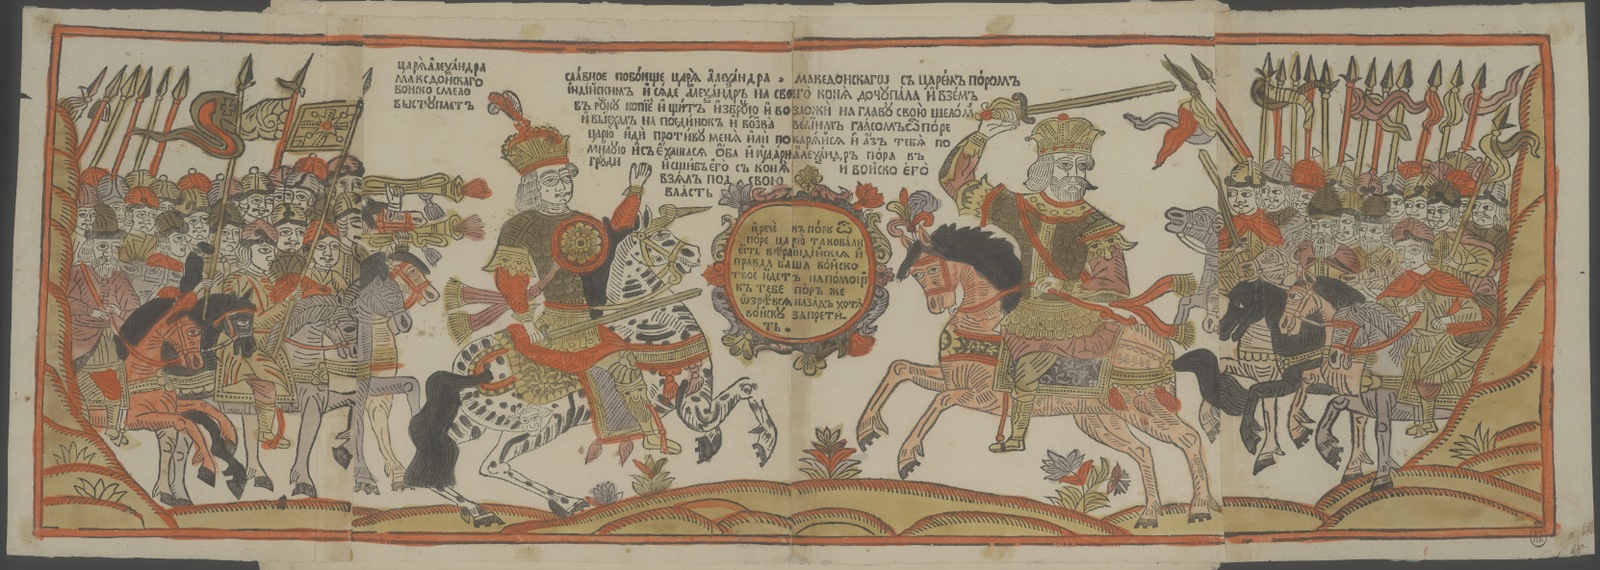 царѧ алеѯа́ндра
македо́нскаго
во́иско смело
выступаетъ
сла́вное побо́ище царѧ̀ а҆леѯа́ндра македо́нскагѡ съ царе́мъ по́ромъ
і҆нді́искимъ и҆ сѧ́де а҆леѯа́ндръ на своего̀ конѧ̀ дочупала и҆ взе́мъ
въ руку копїѐ и҆ щи́тъ и҆ зброю и҆ возложѝ на главу̀ свою̀ шело́мъ
и҆ вы́ехалъ на поеди́нокъ и҆ возва вели́имъ гла́сомъ ѽ по́ре
царю̀ и҆дѝ проти́ву менѧ̀ и҆лѝ покарѧ́исѧ и҆ а҆́зъ тебѧ̀ по
ми́лую и҆ съѣхашасѧ о҆́ба и҆ ѹда́ри а҆леѯа́ндръ по́ра въ
гру́ди и҆ сши́бъ его̀ съ конѧ̀ и҆ воиско его̀
взѧ́лъ под свою
вла́сть
и҆ речѐ къ по́ру ѽ
поре царю̀ таковали
е҆́сть в і҆нді́иская и҆
пра́вда ва́ша воиско
твоѐ иде́тъ на помощъ
къ тебѐ по́ръ же
ѡ҆зрѣ́всѧ наза́дъ хотѧ̀
воиску запрети́-
ть.